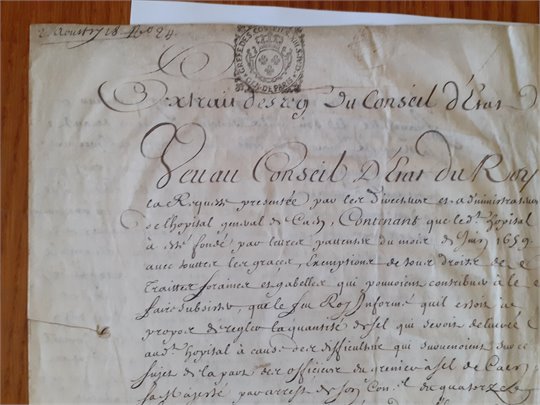 2 Aoust 1718. No 24
Extrait des reg Du Conseil D'Etat
Veu au Conseil D'Etat du Roy
La Requeste presentée par les Directeurs et administrateurs
de l'hopital general de Caen, Contenant que led.t hopital
a esté fondé par lettres patentes du mois de Juin 1659
avec toutes les graces, Exemptions de tous droits de
Traittes foraines et gabelles qui pouvoient contribuer à le
faire subsister, que le feu Roy Informé quil estoit
propos de regler la quantité de sel qui seroit delivrée
aud.t hopital à cause des difficultés qui survenoient
sujet de la part des officiers du grenier a sel de Caen
sa Majesté par arrest de son Con.el du quatorze